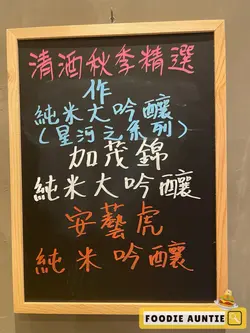 清酒秋季精選
作
純米大吟釀
(星河之系列)
加茂錦
純米大吟釀
安藝虎
純米吟釀
FOODIE AUNTIE